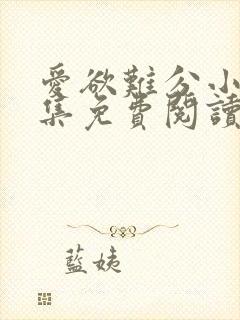 愛欲難分小
集免費閱讀
藍姨